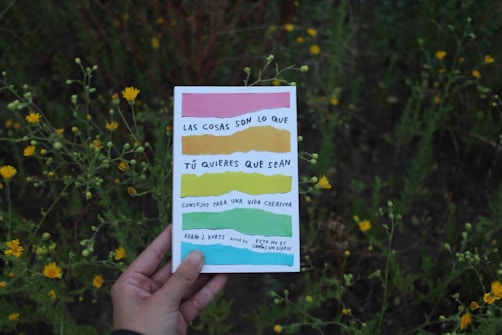 LAS COSAS SON LO QUE
TÚ QUIERES QUE SEAN
CONSEJOS PARA UNA VIDA CREATIVA
ADAM J. KURTZ
AUTOR DE
ESTO NO ES
UN DIARIO